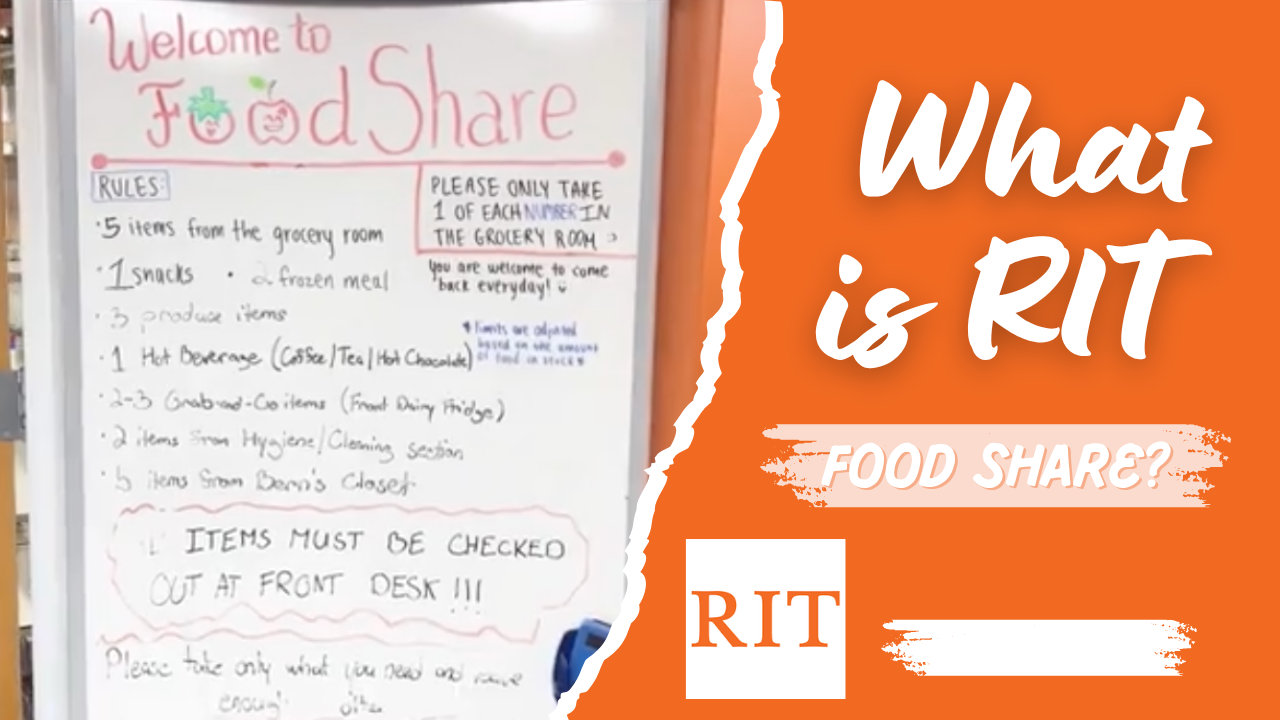 Welcome to
Food Share
RULES:
• 5 items from the grocery room
• 1 snacks • 2 frozen meal
• 3 produce items
• 1 Hot Beverage (Coffee/Tea/Hot Chocolate)
• 2-3 Grab-and-Go items (Front Dairy Fridge)
• 2 items from Hygiene/Cleaning section
• 5 items from Closet
PLEASE ONLY TAKE
1 OF EACH NUMBER IN
THE GROCERY ROOM
you are welcome to come
back everyday!
limits are adjusted
based on the amount
of food in stock
ITEMS MUST BE CHECKED
OUT AT FRONT DESK !!!
Please take only what you need and
enough
What
is RIT
FOOD SHARE?
RIT